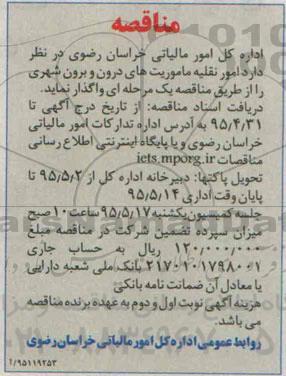 مناقصه
اداره کل امور مالیاتی خراسان رضوی در نظر
دارد امور نقلیه ماموریت های درون و برون شهری
را از طریق مناقصه یک مرحله ای واگذار نماید.
دریافت اسناد مناقصه: از تاریخ درج آگهی تا
۹۵/۴/۳۱ به آدرس اداره تدارکات امور مالیاتی
خراسان رضوی و یا پایگاه اینترنتی اطلاع رسانی
مناقصات iets.mporg.ir
تحویل پاکتها: دبیرخانه اداره کل از ۹۵/۵/۲ تا
پایان وقت اداری ۹۵/۵/۱۴
جلسه کمیسیون یکشنبه ۹۵/۵/۱۷ ساعت ۱۰ صبح
میزان سپرده تضمین شرکت در مناقصه مبلغ
۱۲۰/۰۰۰/۰۰۰ ریال به حساب جاری
۲۱۷۰۲۰۱۷۹۸۰۰۱ بانک ملی شعبه دارایی
یا معادل آن ضمانت نامه بانکی
هزینه آگهی نوبت اول و دوم به عهده برنده مناقصه
می باشد.
روابط عمومی اداره کل امور مالیاتی خراسان رضوی
/۹۵۱۱۹۲۵۳